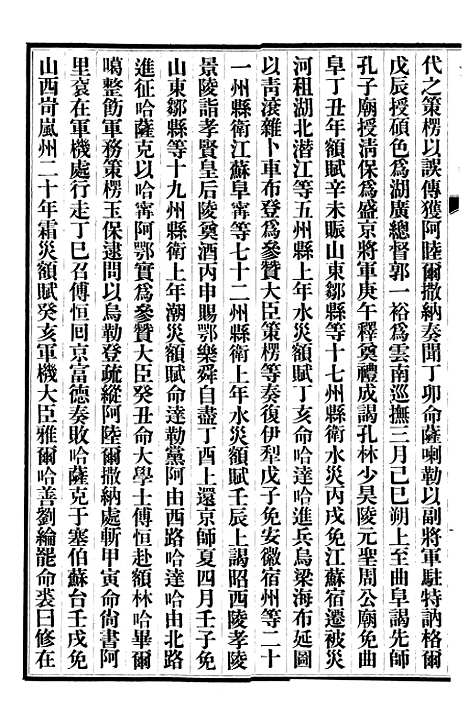 代之策楞以誤傳獲阿陸爾撒納奏聞丁卯命薩喇勒以副將軍駐特訥格爾
戊辰授碩色爲湖廣總督郭一裕爲雲南巡撫三月己巳朔上至曲阜謁先師
孔子廟授清保爲盛京將軍庚午釋奠禮成謁孔林少昊陵元聖周公廟免曲
阜丁丑年額賦辛未賑山東鄒縣等十七州縣衛水災丙戌免江蘇宿遷被災
河租湖北潛江等五州縣上年水災額賦丁亥命哈達哈進兵烏梁海布延圖
以青滾雜卜車布登爲參贊大臣策楞等奏復伊犁戊子免安徽宿州等二十
一州縣衛江蘇阜寧等七十二州縣衛上年水災額賦壬辰上謁昭西陵孝陵
景陵詣孝賢皇后陵奠酒丙申賜鄂樂舜自盡丁酉上還京師夏四月壬子免
山東鄒縣等十九州縣衛上年潮災額賦命達勒黨阿由西路哈達哈由北路
進征哈薩克以哈寗阿鄂實爲參贊大臣癸丑命大學士傅恒赴額林哈畢爾
噶整飭軍務策楞玉保逮問以烏勒登疏縱阿陸爾撒納處斬甲寅命尚書阿
里袞在軍機處行走丁巳召傅恒囘京富德奏敗哈薩克于塞伯蘇台壬戌免
山西岢嵐州二十年霜災額賦癸亥軍機大臣雅爾哈善劉綸罷命裘曰修在